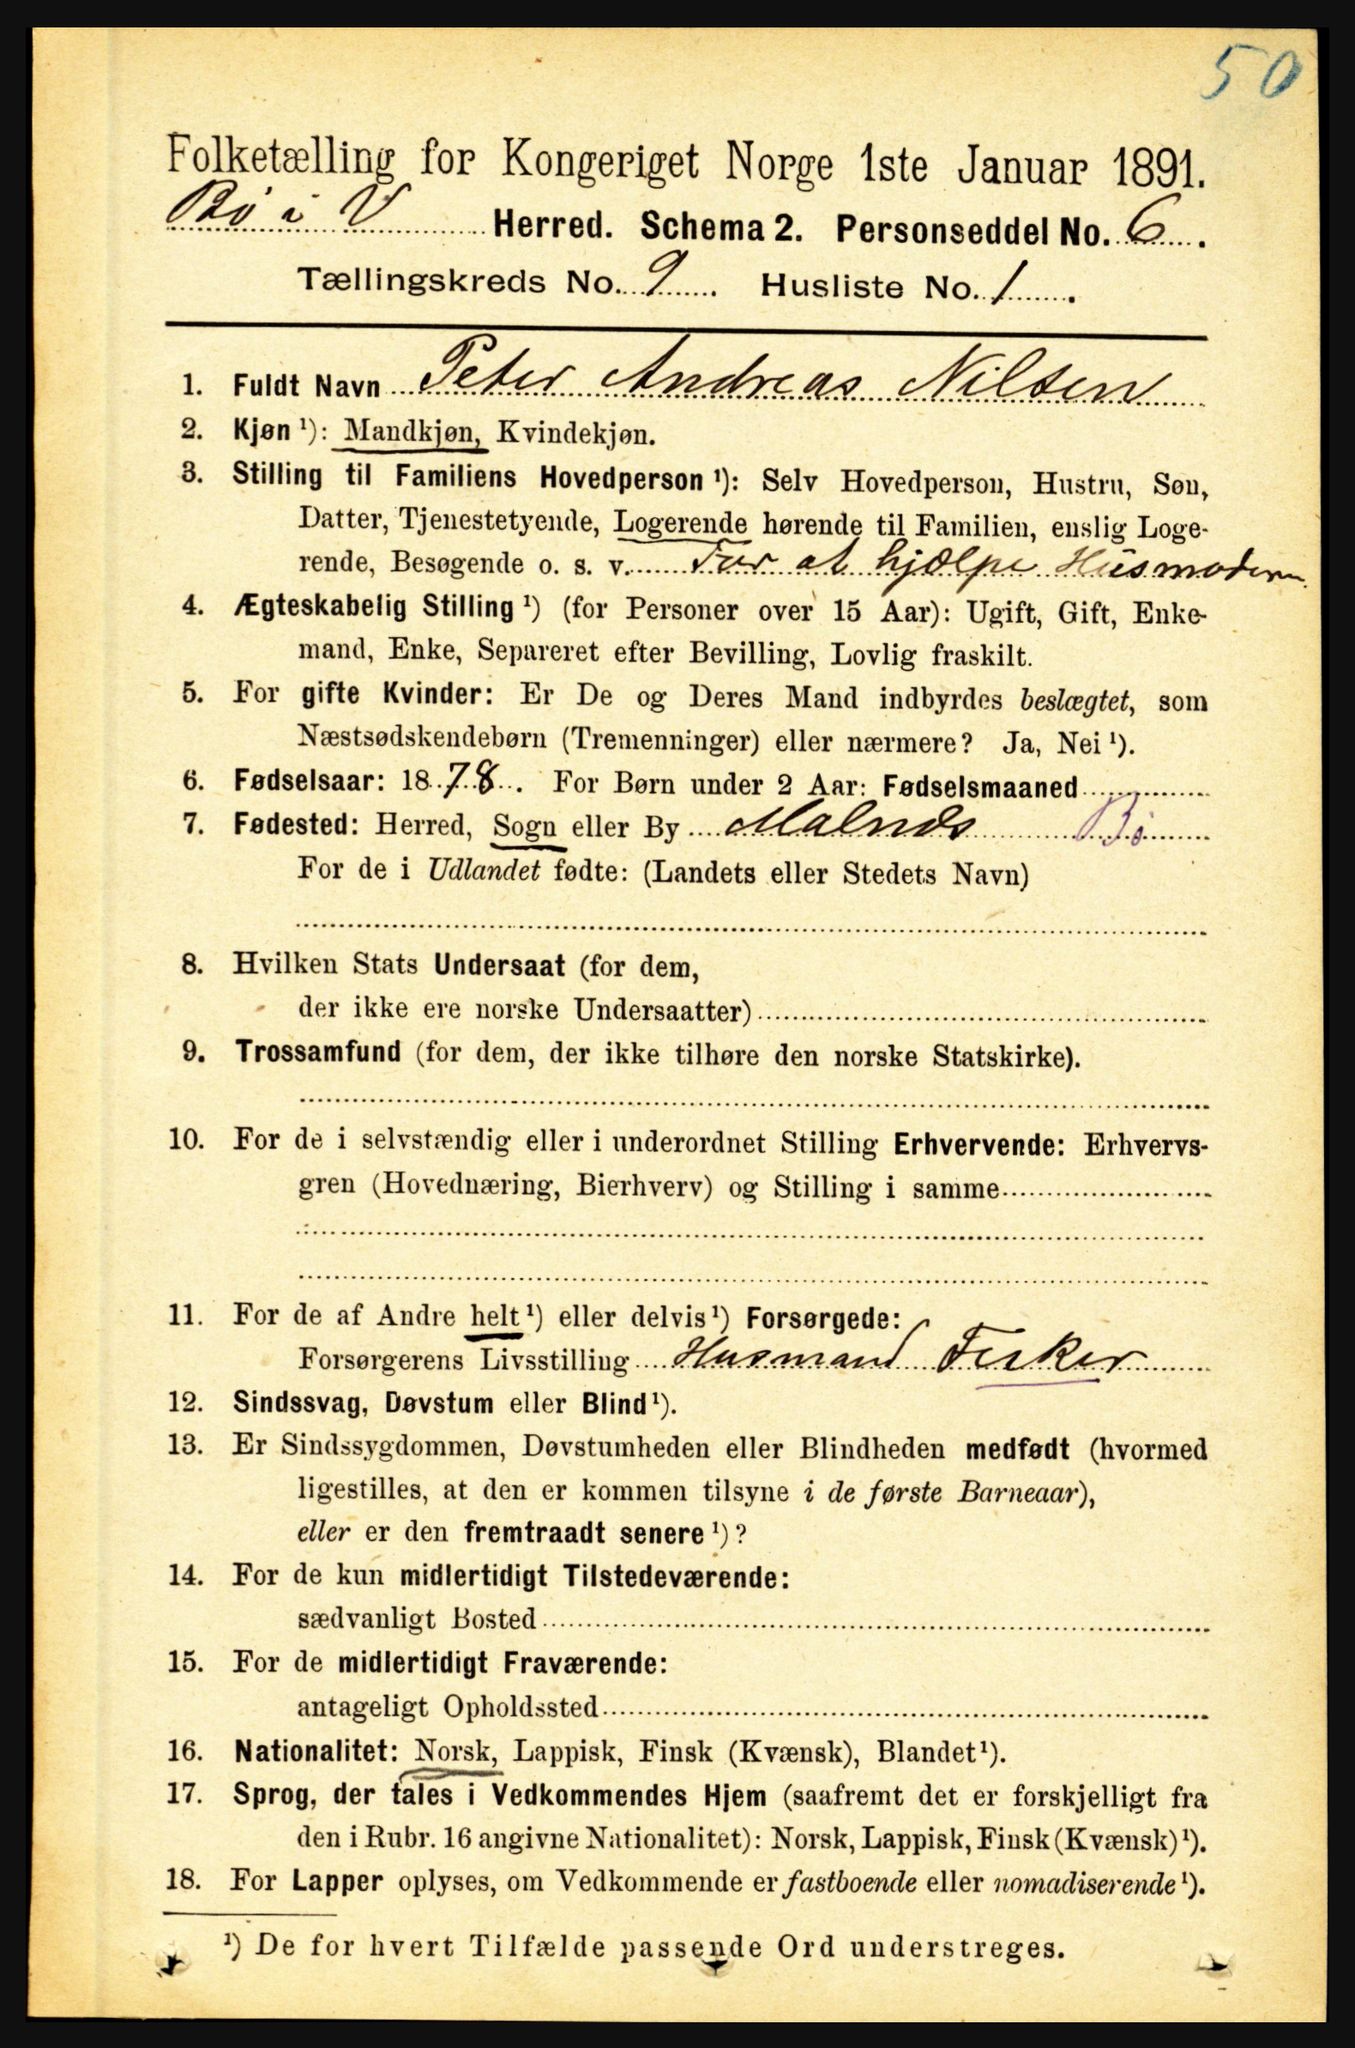 50
Folketælling for Kongeriget Norge 1ste Januar 1891.
Bö i V Herred. Schema 2. Personseddel No. 6.
Tællingskreds No. 9. Husliste No. 1.
1. Fuldt Navn Peter Andreas Nilsen
2. Kjøn ¹): Mandkjøn, Kvindekjøn.
3. Stilling til Familiens Hovedperson ¹): Selv Hovedperson, Hustru, Søn,
Datter, Tjenestetyende, Logerende hørende til Familien, enslig Loge-
rende, Besøgende o. s. v. For at hjælpe Husmoderen
4. Ægteskabelig Stilling ¹) (for Personer over 15 Aar): Ugift, Gift, Enke-
mand, Enke, Separeret efter Bevilling, Lovlig fraskilt.
5. For gifte Kvinder: Er De og Deres Mand indbyrdes beslægtet, som
Næstsødskendebørn (Tremenninger) eller nærmere? Ja, Nei ¹).
6. Fødselsaar: 1878. For Børn under 2 Aar: Fødselsmaaned
7. Fødested: Herred, Sogn eller By Malnæs Bö
For de i Udlandet fødte: (Landets eller Stedets Navn)
8. Hvilken Stats Undersaat (for dem,
der ikke ere norske Undersaatter)
9. Trossamfund (for dem, der ikke tilhøre den norske Statskirke).
10. For de i selvstændig eller i underordnet Stilling Erhvervende: Erhvervs-
gren (Hovednæring, Bierhverv) og Stilling i samme
11. For de af Andre helt ¹) eller delvis ¹) Forsørgede:
Forsørgerens Livsstilling Husmand Fisker
12. Sindssvag, Døvstum eller Blind ¹).
13. Er Sindssygdommen, Døvstumheden eller Blindheden medfødt (hvormed
ligestilles, at den er kommen tilsyne i de første Barneaar),
eller er den fremtraadt senere ¹)?
14. For de kun midlertidigt Tilstedeværende:
sædvanligt Bosted
15. For de midlertidigt Fraværende:
antageligt Opholdssted
16. Nationalitet: Norsk, Lappisk, Finsk (Kvænsk), Blandet ¹).
17. Sprog, der tales i Vedkommendes Hjem (saafremt det er forskjelligt fra
den i Rubr. 16 angivne Nationalitet): Norsk, Lappisk, Finsk (Kvænsk) ¹).
18. For Lapper oplyses, om Vedkommende er fastboende eller nomadiserende ¹).
¹) De for hvert Tilfælde passende Ord understreges.